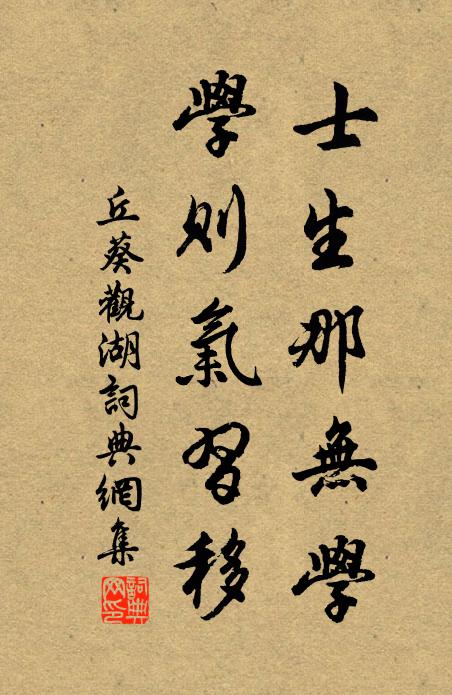 士生那無學
學則氣習移
丘葵觀湖詞典網集
詞典網印